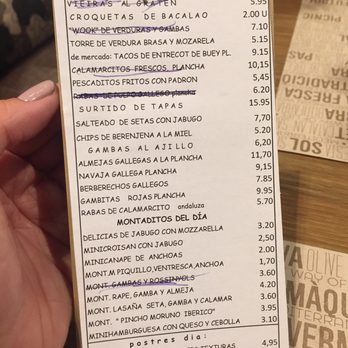 VIEIRAS AL GRATEN 5.95
CROQUETAS DE BACALAO 2.00 U
"WOOK" DE VERDURAS Y GAMBAS 7.10
TORRE DE VERDURA BRASA Y MOZARELA 5.15
de mercado: TACOS DE ENTRECOT DE BUEY PL. 9.15
CALAMARCITOS FRESCOS PLANCHA 10,15
PESCADITOS FRITOS CON PADRON 5,45
RABAS DE PULPO GALLEGO plancha 6.20
SURTIDO DE TAPAS 15.95
SALTEADO DE SETAS CON JABUGO 7,70
CHIPS DE BERENJENA A LA MIEL 5.20
GAMBAS AL AJILLO 6,20
ALMEJAS GALLEGAS A LA PLANCHA 11,70
NAVAJA GALLEGA PLANCHA 9,15
BERBERECHOS GALLEGOS 7.85
GAMBITAS ROJAS PLANCHA 9.95
RABAS DE CALAMARCITO andaluza 5.70
MONTADITOS DEL DÍA
DELICIAS DE JABUGO CON MOZZARELLA 3.20
MINICROISAN CON JABUGO 2,50
MINICANAPE DE ANCHOAS 2.00
MONT.M PIQUILLO,VENTRESCA,ANCHOA 3.60
MONT. GAMBAS Y ROSSINYOLS 3.60
MONT. RAPE, GAMBA Y ALMEJA 4.20
MONT. LASAÑA SETA, GAMBA Y CALAMAR 3.60
MONT. "PINCHO MORUNO IBERICO" 3.90
MINIHAMBURGUESA CON QUESO Y CEBOLLA 3.10
postres dia:
TEXTURAS 4,95
PICNIC
FRESCA
SOL
OLIVE
WAY OF
MÀQU
VERM